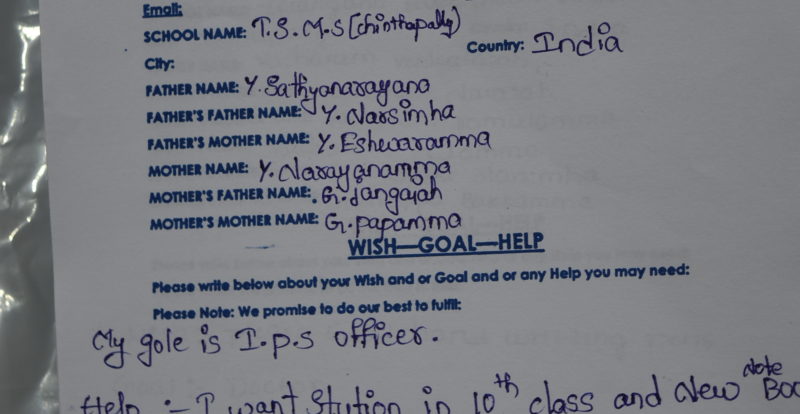 Email:
SCHOOL NAME: T.S.M.S (Chinthapally)
Country: India
City:
FATHER NAME: Y. Sathyanarayana
FATHER'S FATHER NAME: Y. Narsimha
FATHER'S MOTHER NAME: Y. Eshwaramma
MOTHER NAME: Y. Narayanamma
MOTHER'S FATHER NAME: G. Jangaiah
MOTHER'S MOTHER NAME: G. papamma
WISH—GOAL—HELP
Please write below about your Wish and or Goal and or any Help you may need:
Please Note: We promise to do our best to fulfil:
My gole is I.p.s officer.
Help :- I want Stution in 10th class and New Note